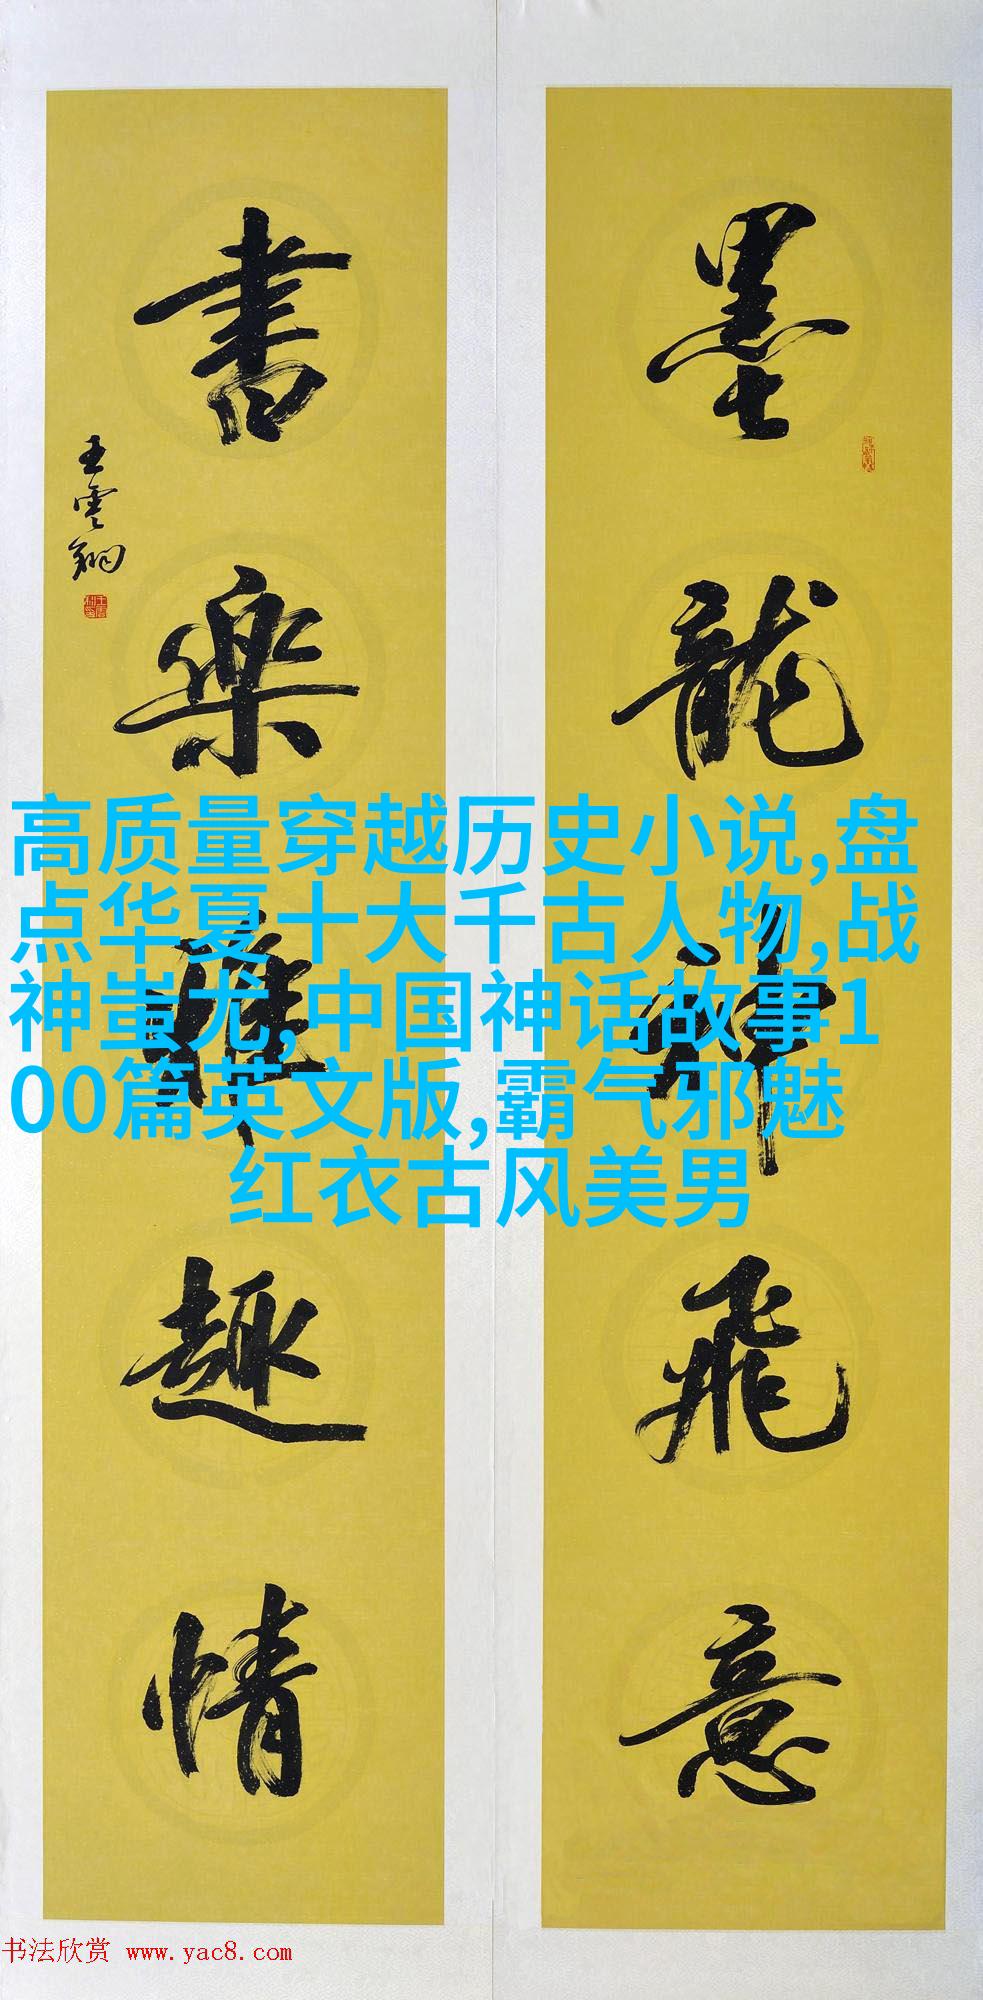 墨龍神飛意
書樂雅趣情
王雲翔
高质量穿越历史小说,盘
点华夏十大千古人物,战
神蚩尤,中国神话故事1
00篇英文版,霸气邪魅
红衣古风美男
书法欣赏 www.yac8.com